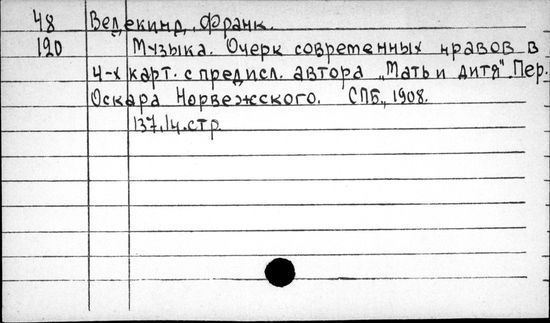 48 Ведекинд, Франк.
120 Музыка. Очерк современных нравов в
4-х карт. с предисл. автора „Мать и дитя". Пер.
Оскара Норвежского. СПБ., 1908.
137,14.стр.